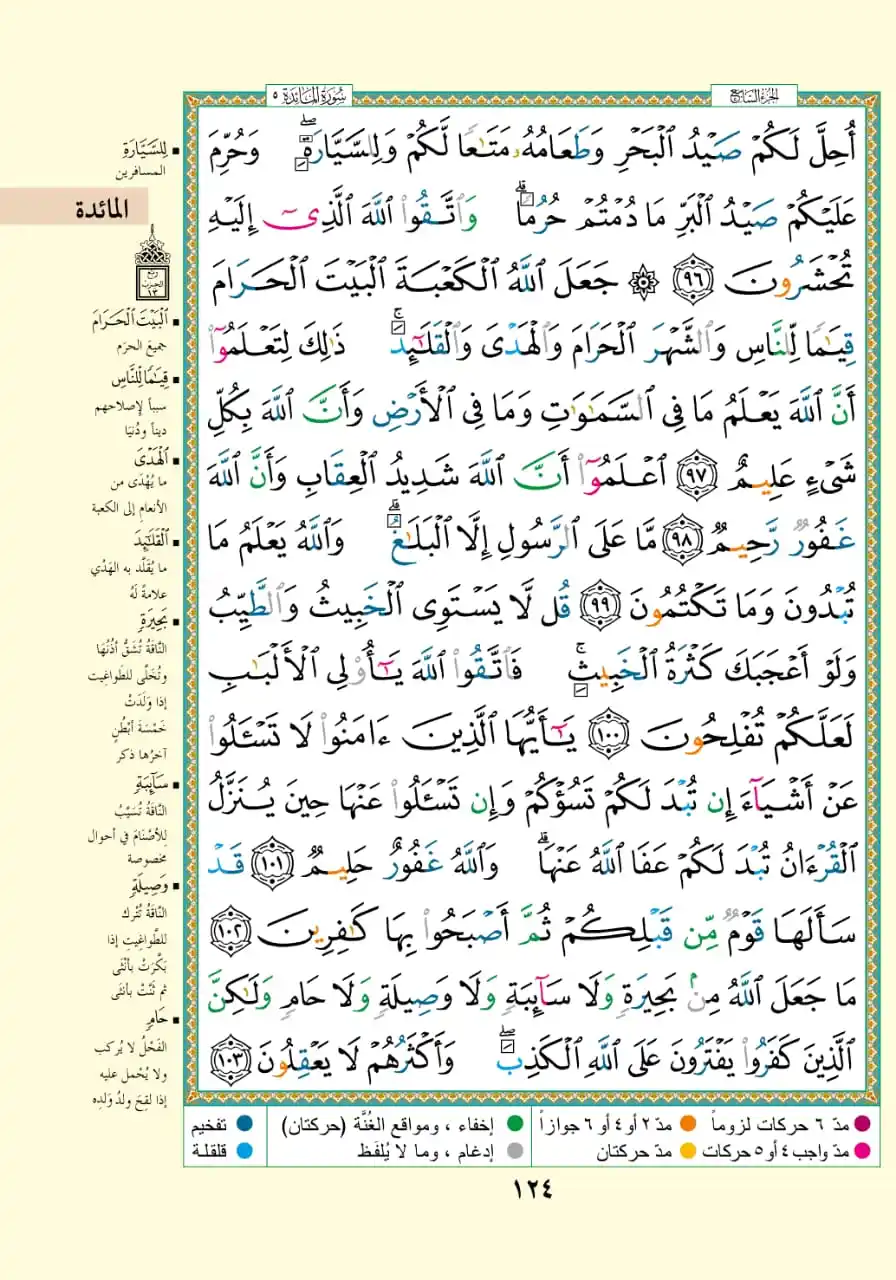 الجزء السابع
سورة المائدة ٥
أُحِلَّ لَكُمْ صَيْدُ ٱلْبَحْرِ وَطَعَامُهُۥ مَتَٰعًا لَّكُمْ وَلِلسَّيَّارَةِ ۖ وَحُرِّمَ
عَلَيْكُمْ صَيْدُ ٱلْبَرِّ مَا دُمْتُمْ حُرُمًا ۗ وَٱتَّقُوا۟ ٱللَّهَ ٱلَّذِىٓ إِلَيْهِ
تُحْشَرُونَ ٩٦ ۞ جَعَلَ ٱللَّهُ ٱلْكَعْبَةَ ٱلْبَيْتَ ٱلْحَرَامَ
قِيَٰمًا لِّلنَّاسِ وَٱلشَّهْرَ ٱلْحَرَامَ وَٱلْهَدْىَ وَٱلْقَلَٰٓئِدَ ۚ ذَٰلِكَ لِتَعْلَمُوٓا۟
أَنَّ ٱللَّهَ يَعْلَمُ مَا فِى ٱلسَّمَٰوَٰتِ وَمَا فِى ٱلْأَرْضِ وَأَنَّ ٱللَّهَ بِكُلِّ
شَىْءٍ عَلِيمٌ ٩٧ ٱعْلَمُوٓا۟ أَنَّ ٱللَّهَ شَدِيدُ ٱلْعِقَابِ وَأَنَّ ٱللَّهَ
غَفُورٌ رَّحِيمٌ ٩٨ مَّا عَلَى ٱلرَّسُولِ إِلَّا ٱلْبَلَٰغُ ۗ وَٱللَّهُ يَعْلَمُ مَا
تُبْدُونَ وَمَا تَكْتُمُونَ ٩٩ قُل لَّا يَسْتَوِى ٱلْخَبِيثُ وَٱلطَّيِّبُ
وَلَوْ أَعْجَبَكَ كَثْرَةُ ٱلْخَبِيثِ ۚ فَٱتَّقُوا۟ ٱللَّهَ يَٰٓأُو۟لِى ٱلْأَلْبَٰبِ
لَعَلَّكُمْ تُفْلِحُونَ ١٠٠ يَٰٓأَيُّهَا ٱلَّذِينَ ءَامَنُوا۟ لَا تَسْـَٔلُوا۟
عَنْ أَشْيَآءَ إِن تُبْدَ لَكُمْ تَسُؤْكُمْ وَإِن تَسْـَٔلُوا۟ عَنْهَا حِينَ يُنَزَّلُ
ٱلْقُرْءَانُ تُبْدَ لَكُمْ عَفَا ٱللَّهُ عَنْهَا ۗ وَٱللَّهُ غَفُورٌ حَلِيمٌ ١٠١ قَدْ
سَأَلَهَا قَوْمٌ مِّن قَبْلِكُمْ ثُمَّ أَصْبَحُوا۟ بِهَا كَٰفِرِينَ ١٠٢
مَا جَعَلَ ٱللَّهُ مِنۢ بَحِيرَةٍ وَلَا سَآئِبَةٍ وَلَا وَصِيلَةٍ وَلَا حَامٍ وَلَٰكِنَّ
ٱلَّذِينَ كَفَرُوا۟ يَفْتَرُونَ عَلَى ٱللَّهِ ٱلْكَذِبَ ۖ وَأَكْثَرُهُمْ لَا يَعْقِلُونَ ١٠٣
لِلسَّيَّارَةِ
المسافرين
المائدة
ربع
الحزب
١٣
ٱلْبَيْتَ ٱلْحَرَامَ
جميعَ الحرَم
قِيَٰمًا لِّلنَّاسِ
سبباً لإصلاحهم
ديناً ودُنيَا
ٱلْهَدْىَ
ما يُهْدَى من
الأنعام إلى الكعبة
ٱلْقَلَٰٓئِدَ
ما يُقَلَّد به الهَدْي
علامةً لَهُ
بَحِيرَةٍ
النَّاقةُ تُشَقُّ أذُنُهَا
وتُخَلَّى للطَواغيت
إذا وَلَدَتْ
خَمْسَةَ أَبْطُنٍ
آخرُها ذكر
سَآئِبَةٍ
النَّاقةُ تُسَيَّبُ
لِلأصْنَام في أحوال
مخصوصة
وَصِيلَةٍ
النَّاقةُ تُتْرك
للطَّواغيتِ إذا
بَكَّرَتْ بأنْثَى
ثم ثَنَّتْ بأنثَى
حَامٍ
الفَحْلُ لا يُركب
ولا يُحْمل عليه
إذا لقِحَ ولدُ وَلدِه
مدّ ٦ حركات لزوماً
مدّ ٢ أو ٤ أو ٦ جوازاً
إخفاء ، ومواقع الغُنَّة (حركتان)
تفخيم
مدّ واجب ٤ أو ٥ حركات
مدّ حركتان
إدغام ، وما لا يُلفَظ
قلقلة
١٢٤